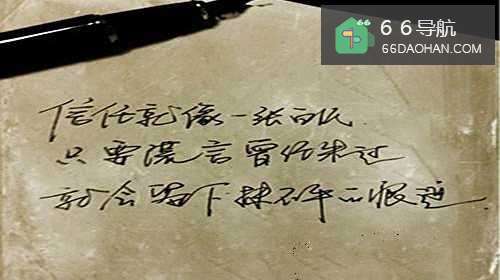 66导航
66DAOHAN.COM
信任就像一张白纸
只要谎言曾经来过
就会留下抹不平的痕迹